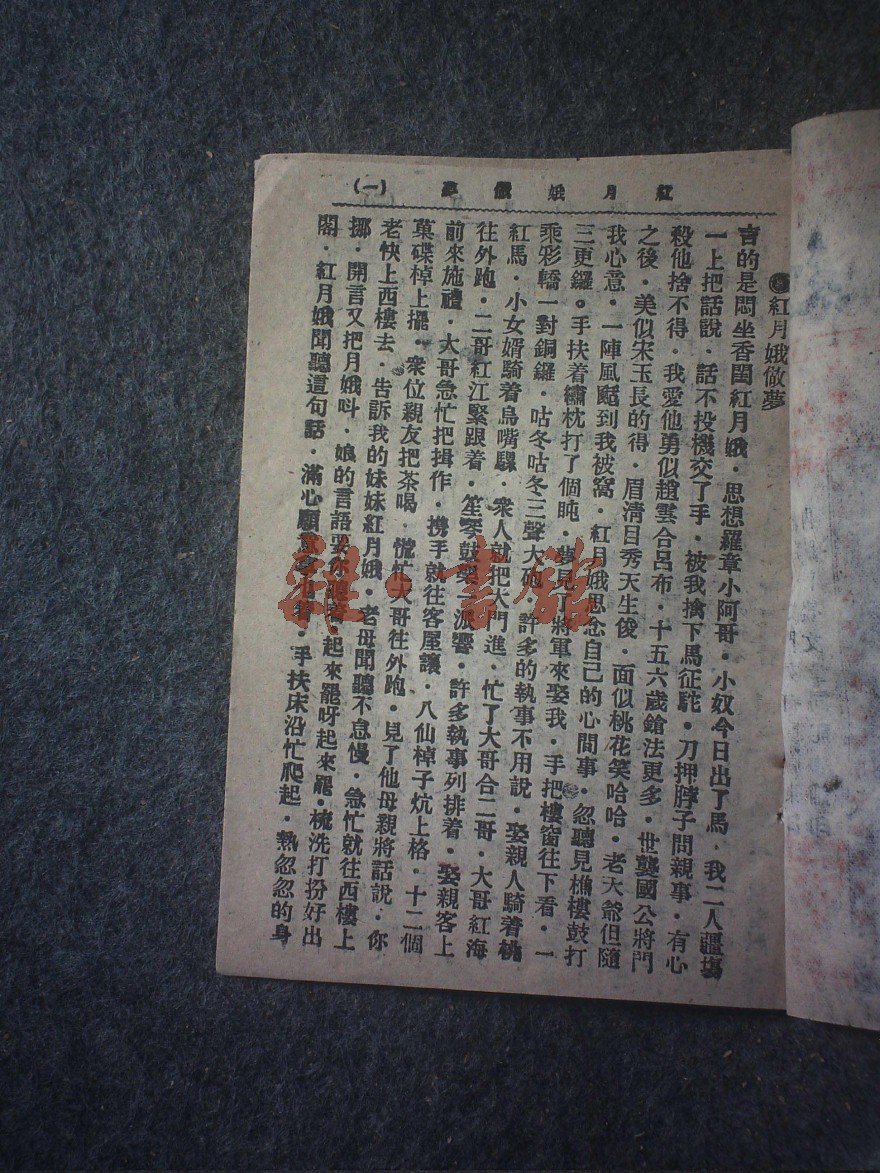 紅月娥做夢 (一)
紅月娥做夢
言的是悶坐香閨紅月娥·思想羅章小阿哥·小奴今日出了馬·我二人疆塲
一上把話說·話不投機交了手·被我擒下馬征駝·刀押脖子問親事·有心
殺他捨不得·我愛他勇似趙雲合呂布·十五六歲鎗法更多·世襲國公將門
之後·美似宋玉長的得·眉清目秀天生俊·面似桃花笑哈哈·老天爺但隨
我心意·一陣風颳到我被窩·紅月娥思念自己的心間事·忽聽見樵樓鼓打
三更鑼·手扶着繡枕打了個盹·夢見了將軍來娶我·手把樓窗往下看·一
乘彩轎一對銅鑼·咕冬咕冬三聲大砲·許多的執事不用說·娶親人騎着桃
紅馬·小女婿騎着烏嘴騾·衆人就把大門進·忙了大哥合二哥·大哥紅海
往外跑·二哥紅江緊跟着·笙琴鼓樂派響·許多執事列排着·娶親客上
前來施禮·大哥急忙把揖作·携手就往客屋讓·八仙棹子炕上格·十二個
菓碟棹上擺·衆位親友把茶喝·慌忙大哥往外跑·見了他母親將話說·你
老快上西樓去·告訴我的妹妹紅月娥·老母聞聽不怠慢·急忙就往西樓上
挪·開言又把月娥呌·娘的言語要你·起來罷呀起來罷·梳洗打扮好出
閣·紅月娥聞聽這句話·滿心願意·手扶床沿忙爬起·熱忽忽的身
雜·書館